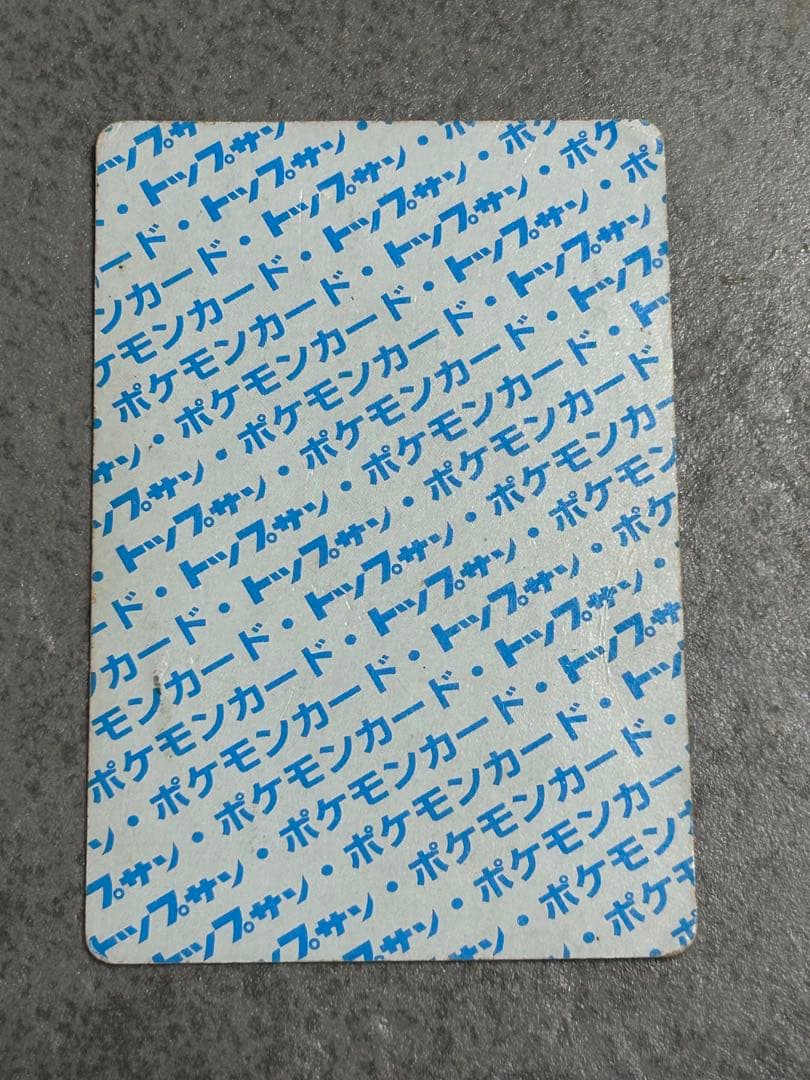 ップサ
・トップサン
ード・トップサン・
ンカード・トップサン・ポ
ケモンカード・トップサン・ポケ
・ポケモンカード・トップサン・ポ
ン・ポケモンカード・トップサン・
サン・ポケモンカード・トップサン
プサン・ポケモンカード・トッ
・トップサン・ポケモンカード・ト
ード・トップサン・ポケモンカード
カード・トップサン・ポケモンカ
モンカード・トップサン・ポケモン
ポケモンカード・トップサン・ポケ
ン・ポケモンカード・トップサン・
プサン・ポケモンカード・トップサ
トップサン・ポケモンカード・トッ
トップサン・ポケモンカード・
プサン・ポケモンカード
サン・ポケモン
・ポケ
ポ